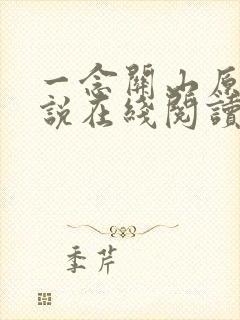 一念關山原
說在綫閱讀
季芹